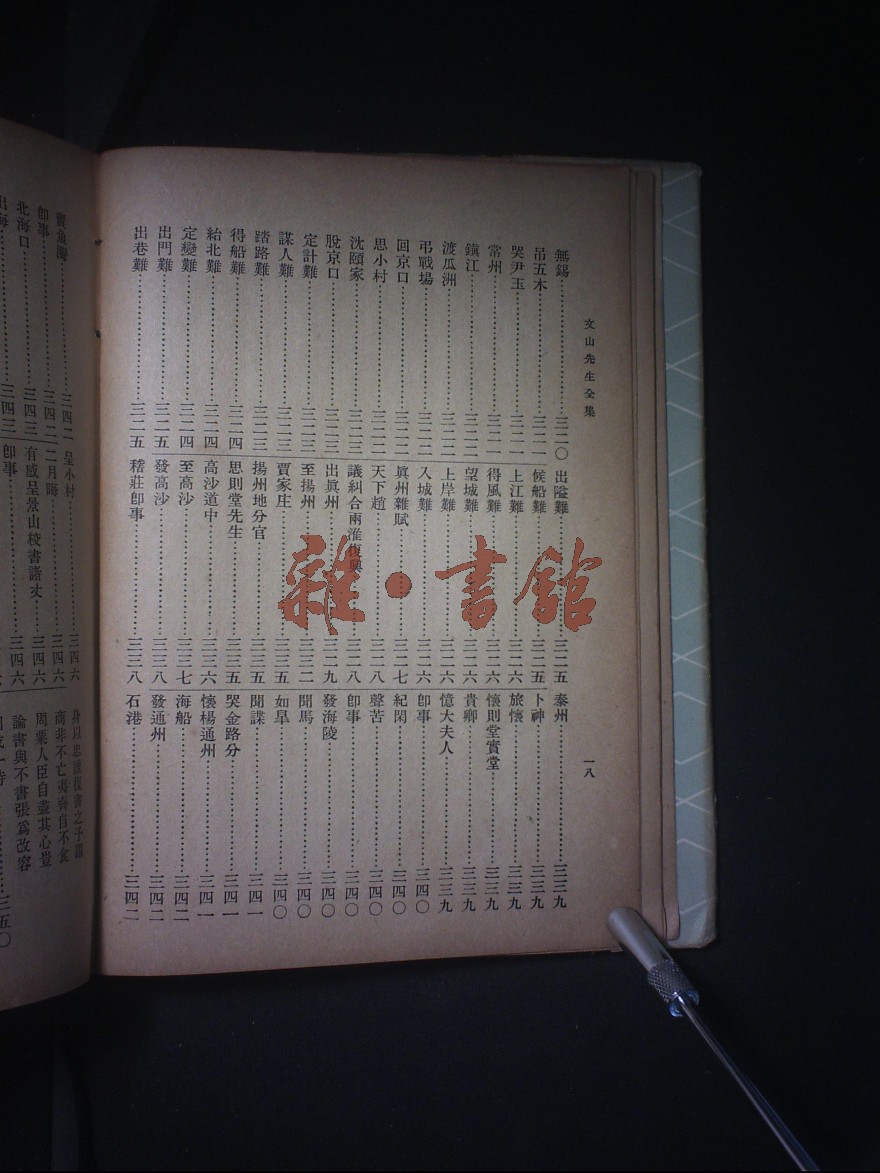 文山先生全集
一八
無錫……三二〇
吊五木……三二一
哭尹玉……三二一
常州……三二一
鎭江……三二一
渡瓜洲……三二二
弔戰場……三二二
回京口……三二二
思小村……三二二
沈頤家……三二三
脫京口……三二三
定計難……三二三
謀人難……三二三
踏路難……三二三
得船難……三二四
紿北難……三二四
定變難……三二四
出門難……三二五
出巷難……三二五
出隘難……三二五
候船難……三二五
上江難……三二六
得風難……三二六
望城難……三二六
上岸難……三二六
入城難……三二六
眞州雜賦……三二七
天下趙……三二八
議糾合兩淮復興……三二八
出眞州……三二九
至揚州……三三二
賈家庄……三三五
揚州地分官……三三五
思則堂先生……三三五
高沙道中……三三六
至高沙……三三七
發高沙……三三八
稽莊卽事……三三八
泰州……三三九
卜神……三三九
旅懷……三三九
懷則堂實堂……三三九
貴卿……三三九
憶大夫人……三三九
卽事……三四〇
紀閑……三四〇
聲苦……三四〇
卽事……三四〇
發海陵……三四〇
聞馬……三四〇
如臯……三四〇
聞諜……三四一
哭金路分……三四一
懷楊通州……三四一
海船……三四二
發通州……三四二
石港……三四二
賣魚灣……三四二
卽事……三四二
北海口……三四三
出海……三四三
呈小村……三四六
二月晦……三四六
有感呈景山校書諸丈……三四六
卽事……三四六
商非不亡夷齊自不食
周粟人臣自盡其心豈
論書與不書張爲改容
三五〇
雜·書館